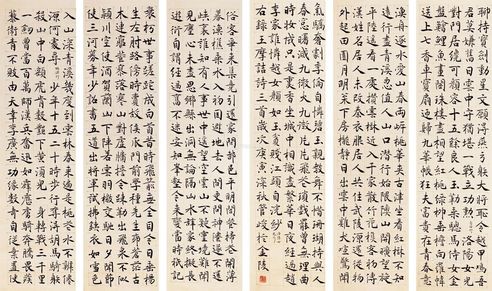 漁舟逐水愛山春兩岸桃華夾古津坐看紅樹不知
遠行盡青溪忽值人山口潛行始隈隩山開曠望旋
平陸遙看一處攢雲樹近入千家散花竹樵客初傳
漢姓名居人未改秦衣服居人共住武陵源還從物
外起田園月明松下房櫳靜日出雲中雞犬喧驚聞
俗客爭來集競引還家問都邑平明閭巷掃花開薄
暮漁樵乘水入初因避地去人間更問神仙遂不還
峽裏誰知有人事世中遙望空雲山不疑靈境難聞
見塵心未盡思鄉縣出洞無論隔山水辭家終擬長
遊衍自謂經過舊不迷安知峰壑今來變當時祇記
入山深青溪幾度到雲林春來遍是桃花水不辨僊
源何處尋 少年十五二十時步行奪得胡馬騎射
殺山中白額虎肯數鄴下黃須兒一身轉戰三千里
一劍曾當百萬師漢兵奮迅如霹靂虜騎奔騰畏蒺
藜衛青不敗由天幸李廣無功緣數奇自從棄置便
衰朽世事蹉跎成白首昔時飛箭無全目今日垂楊
生左肘路傍時賣故侯瓜門前學種先生柳蒼茫古
木連窮巷寥落寒山對虛牖誓令疏勒出飛泉不似
潁川空使酒賀蘭山下陣如雲羽檄交馳日夕聞節
使三河募年少詔書五道出將軍試拂鐵衣如雪色
聊持寶劍動星文願得燕弓射大將恥令越甲鳴吾
君莫嫌舊日雲中守猶堪一戰立功勳 洛陽女兒
對門居纔可顏容十五餘良人玉勒乘驄馬侍女金
盤膾鯉魚畫閣朱樓盡相望紅桃綠柳垂簷向羅帷
送上七香車寶扇迎歸九華帳狂夫富貴在青春意
氣驕奢劇季倫自憐碧玉親教舞不惜珊瑚持與人
春窗曙滅九微火九微片片飛花璅戲罷曾無理曲
時妝成祗是熏香坐城中相識盡繁華日夜經過趙
李家誰憐越女顏如玉貧賤江頭自浣紗
右錄王摩詰詩三首歲次庚寅深秋管峻於金陵